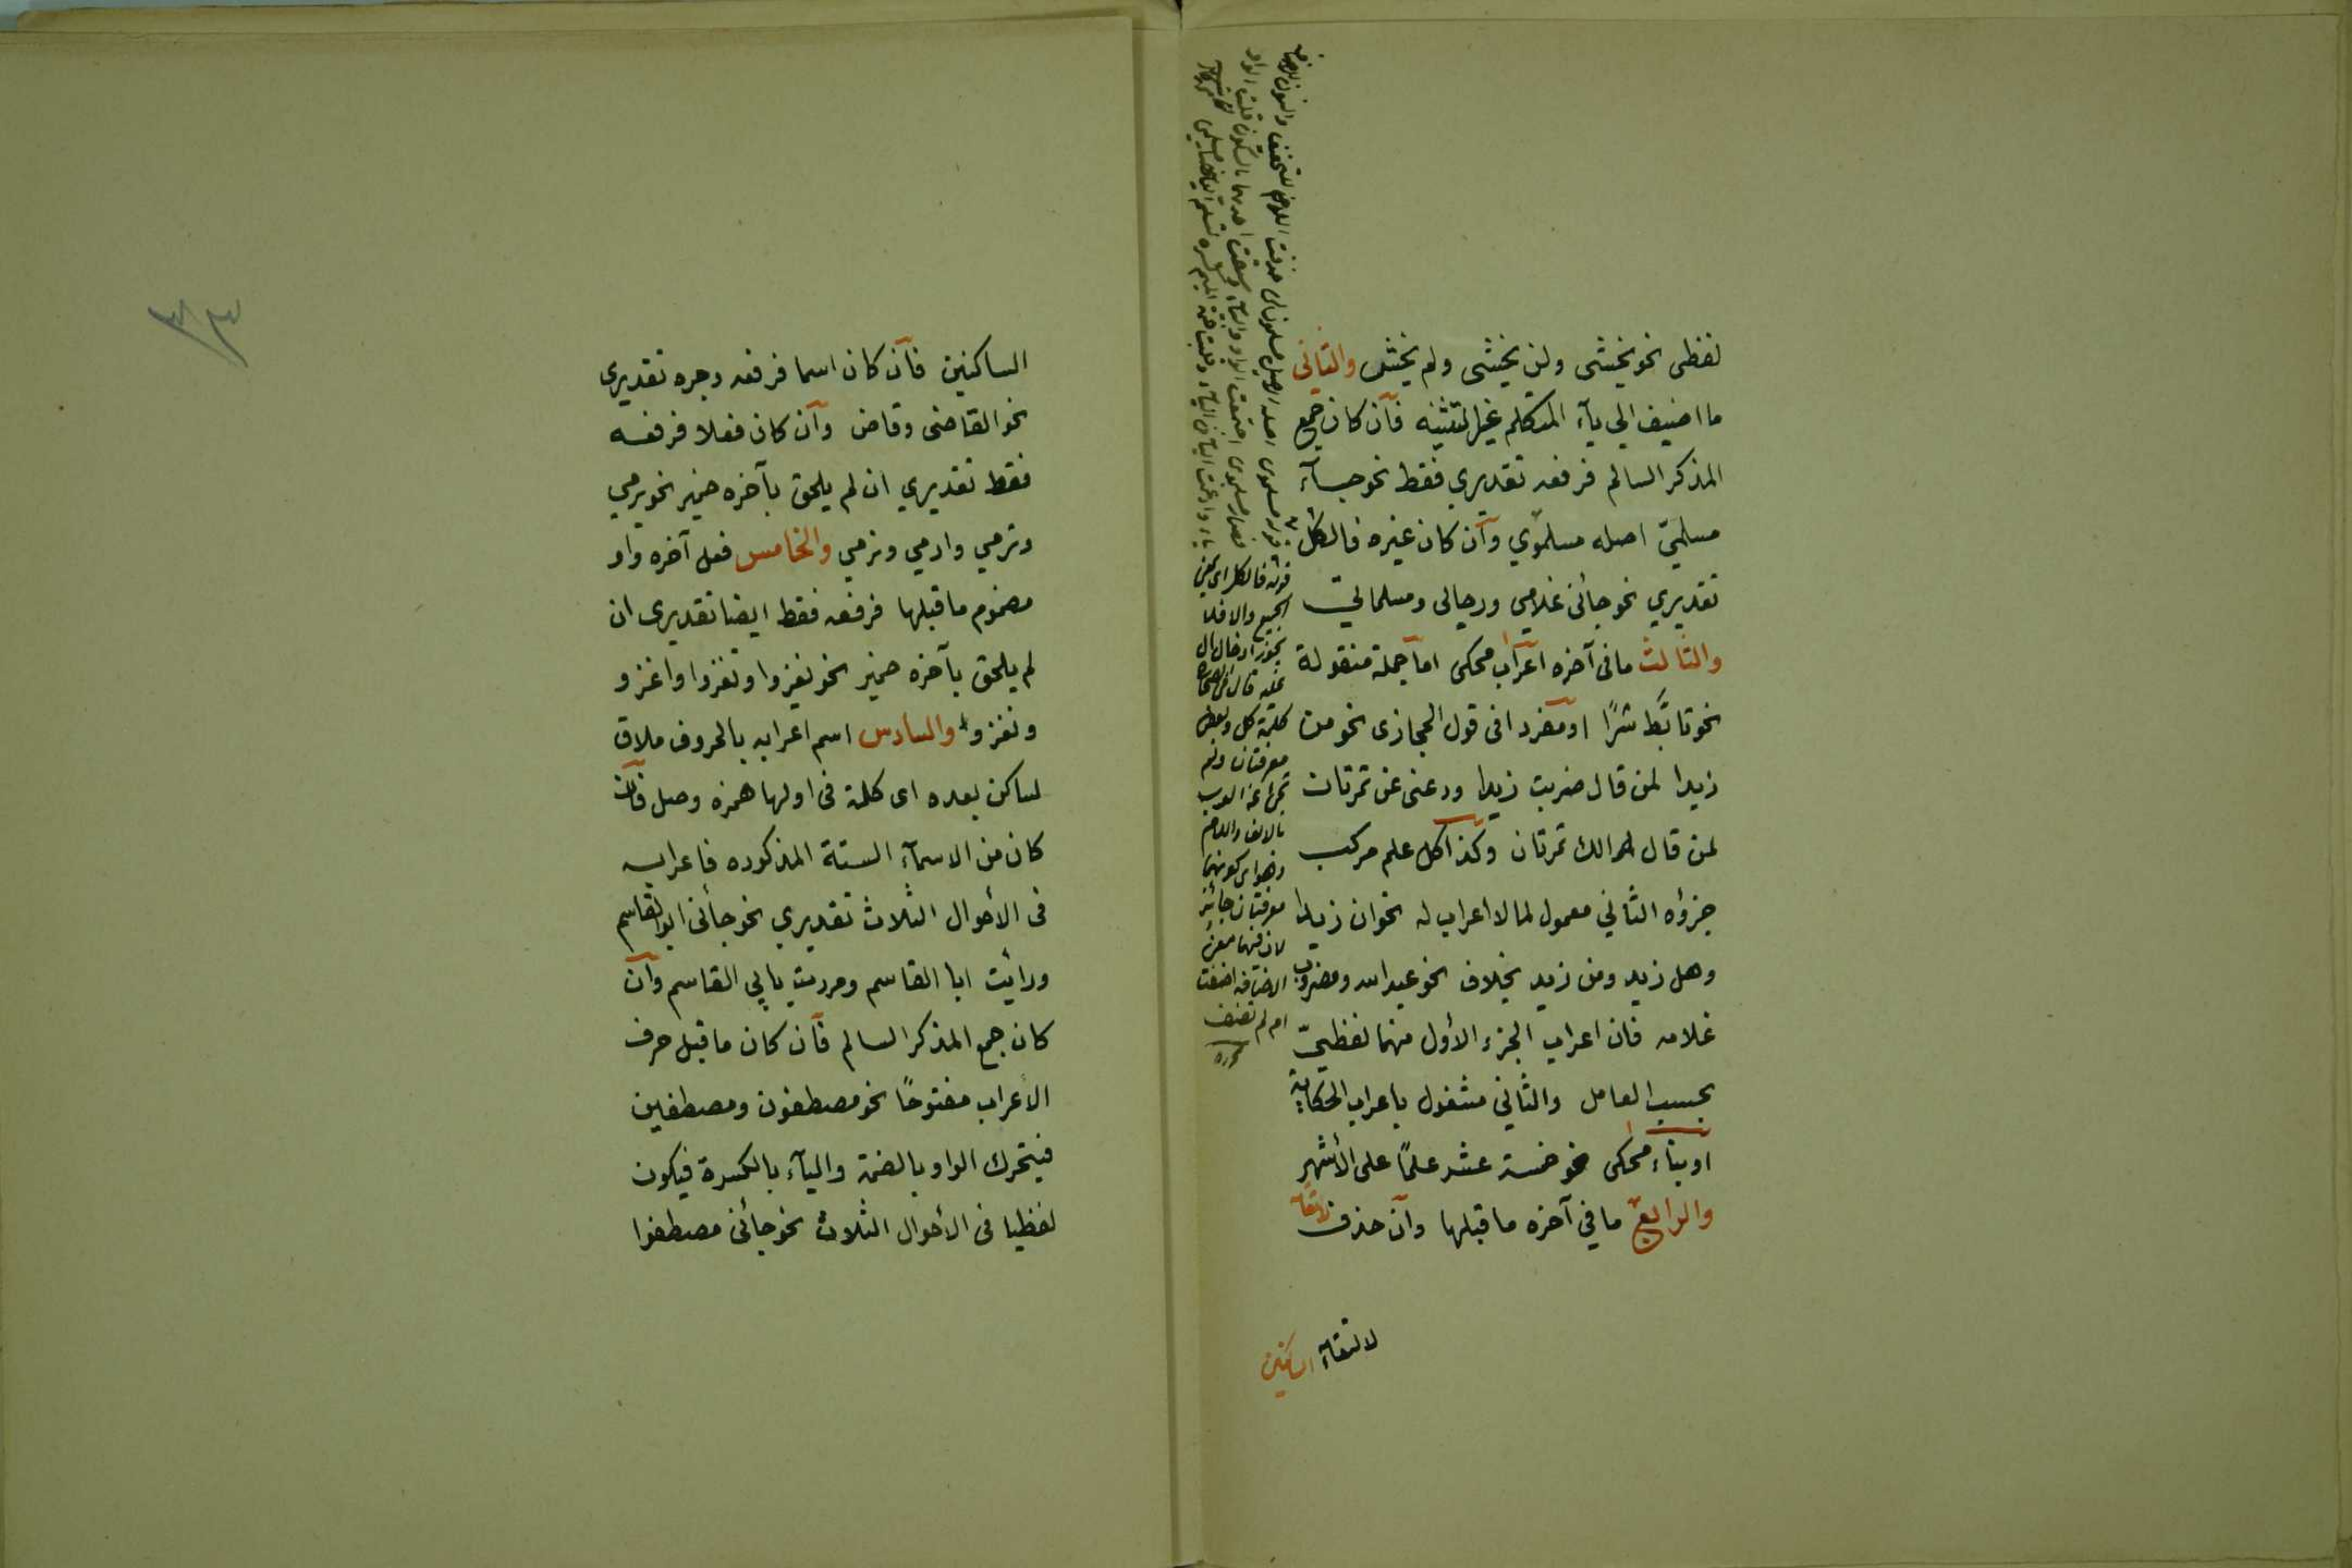 لفظى نحو يخشى ولن يخشى ولم يخش والثاني
ما اضيف الي يآء المتكلم غير التثنيه فآن كان جمع
المذكر السالم فرفعه تقديري فقط نحو جسآء
مسلميّ اصله مسلموي وآن كان غيره فالكل
تقديري نحو جائنى غلامي ورجالى ومسلماتيّ
والثالث ما فى آخره اعراب محكى اما جملة منقولة
نحو تابَّط شرًا او مفرد افى قول الحجازى نحو من
زيدا لمن قال ضربت زيدا ودعنى عن تمرتان
لمن قال الك تمرتان وكذا كل علم مركب
جزؤه الثاني معمول لما لا اعراب له نحو ان زيدا
وهل زيد ومن زيد بخلاف نحو عبد الله ومضروب
غلامه فان اعراب الجزء الأول منهما لفظيّ
بحسب العامل والثاني مشغول باعراب الحكاية
او بناء محكى نحو خمسة عشر علمًا على الأشهر
والرابع ما في آخره ما قبلها وآن حذف
لالتقآء الساكنين
قوله فالكل اى يعنى
الجميع والا فلا
يجوز ادخال ال
عليه قال فى الصحاح
كلمة كل وبعض
معرفتان ولم
تجئ عن العرب
بالالف واللام
وهو اى كونهما
معرفتان جائز
لان فيهما معنى
الاضافة اضفت
ام لم تضف
٣٣
الساكنين فآن كان اسما فرفعه وجره تقديرى
نحو القاضى وقاض وآن كان فعلا فرفعه
فقط تقديري ان لم يلحق بآخره ضمير نحو يرمي
وترمي وارمي ونرمي والخامس فعل آخره واو
مضموم ما قبلها فرفعه فقط ايضا تقديرى ان
لم يلحق بآخره ضمير نحو يغزوا وتغزوا واغزو
ونغزو والسادس اسم اعرابه بالحروف ملاق
لساكن بعده اى كلمة فى اولها همزه وصل فآن
كان من الاسمآء الستة المذكوره فاعرابه
فى الأحوال الثلاث تقديري نحو جأنى ابو القاسم
ورأيت ابا القاسم ومررت بابي القاسم وآن
كان جمع المذكر السالم فآن كان ما قبل حرف
الأعراب مفتوحًا نحو مصطفون ومصطفين
فيتحرك الواو بالضمة واليآء بالكسرة فيكون
لفظيا فى الأحوال الثلاث نحو جائنى مصطفوا